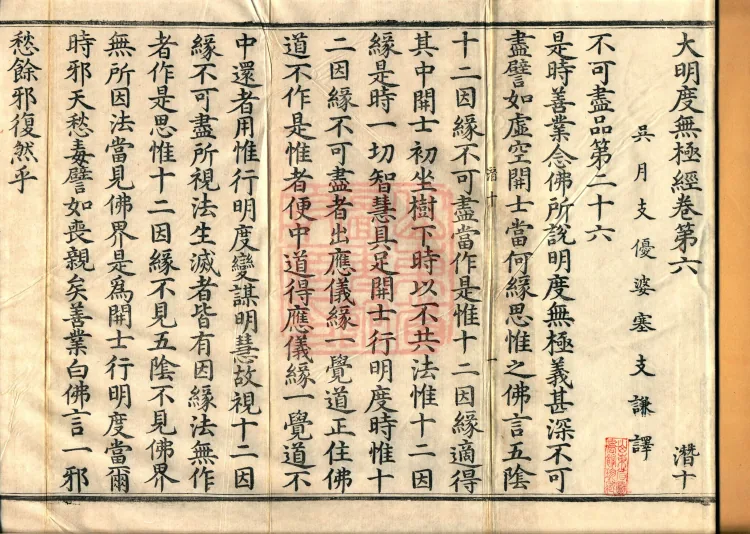 大明度無極經卷第六 潛十
吳月支優婆塞支謙譯
不可盡品第二十六
是時善業念佛所說明度無極義甚深不可
盡譬如虛空開士當何緣思惟之佛言五陰
十二因緣不可盡當作是惟十二因緣適得
潛十 一
其中開士初坐樹下時以不共法惟十二因
緣是時一切智慧具足開士行明度時惟十
二因緣不可盡者出應儀緣一覺道正住佛
道不作是惟者便中道得應儀緣一覺道不
中還者用惟行明度變謀明慧故視十二因
緣不可盡所視法生滅者皆有因緣法無作
者作是思惟十二因緣不見五陰不見佛界
無所因法當見佛界是為開士行明度當爾
時邪天愁毒譬如喪親矣善業白佛言一邪
愁餘邪復然乎